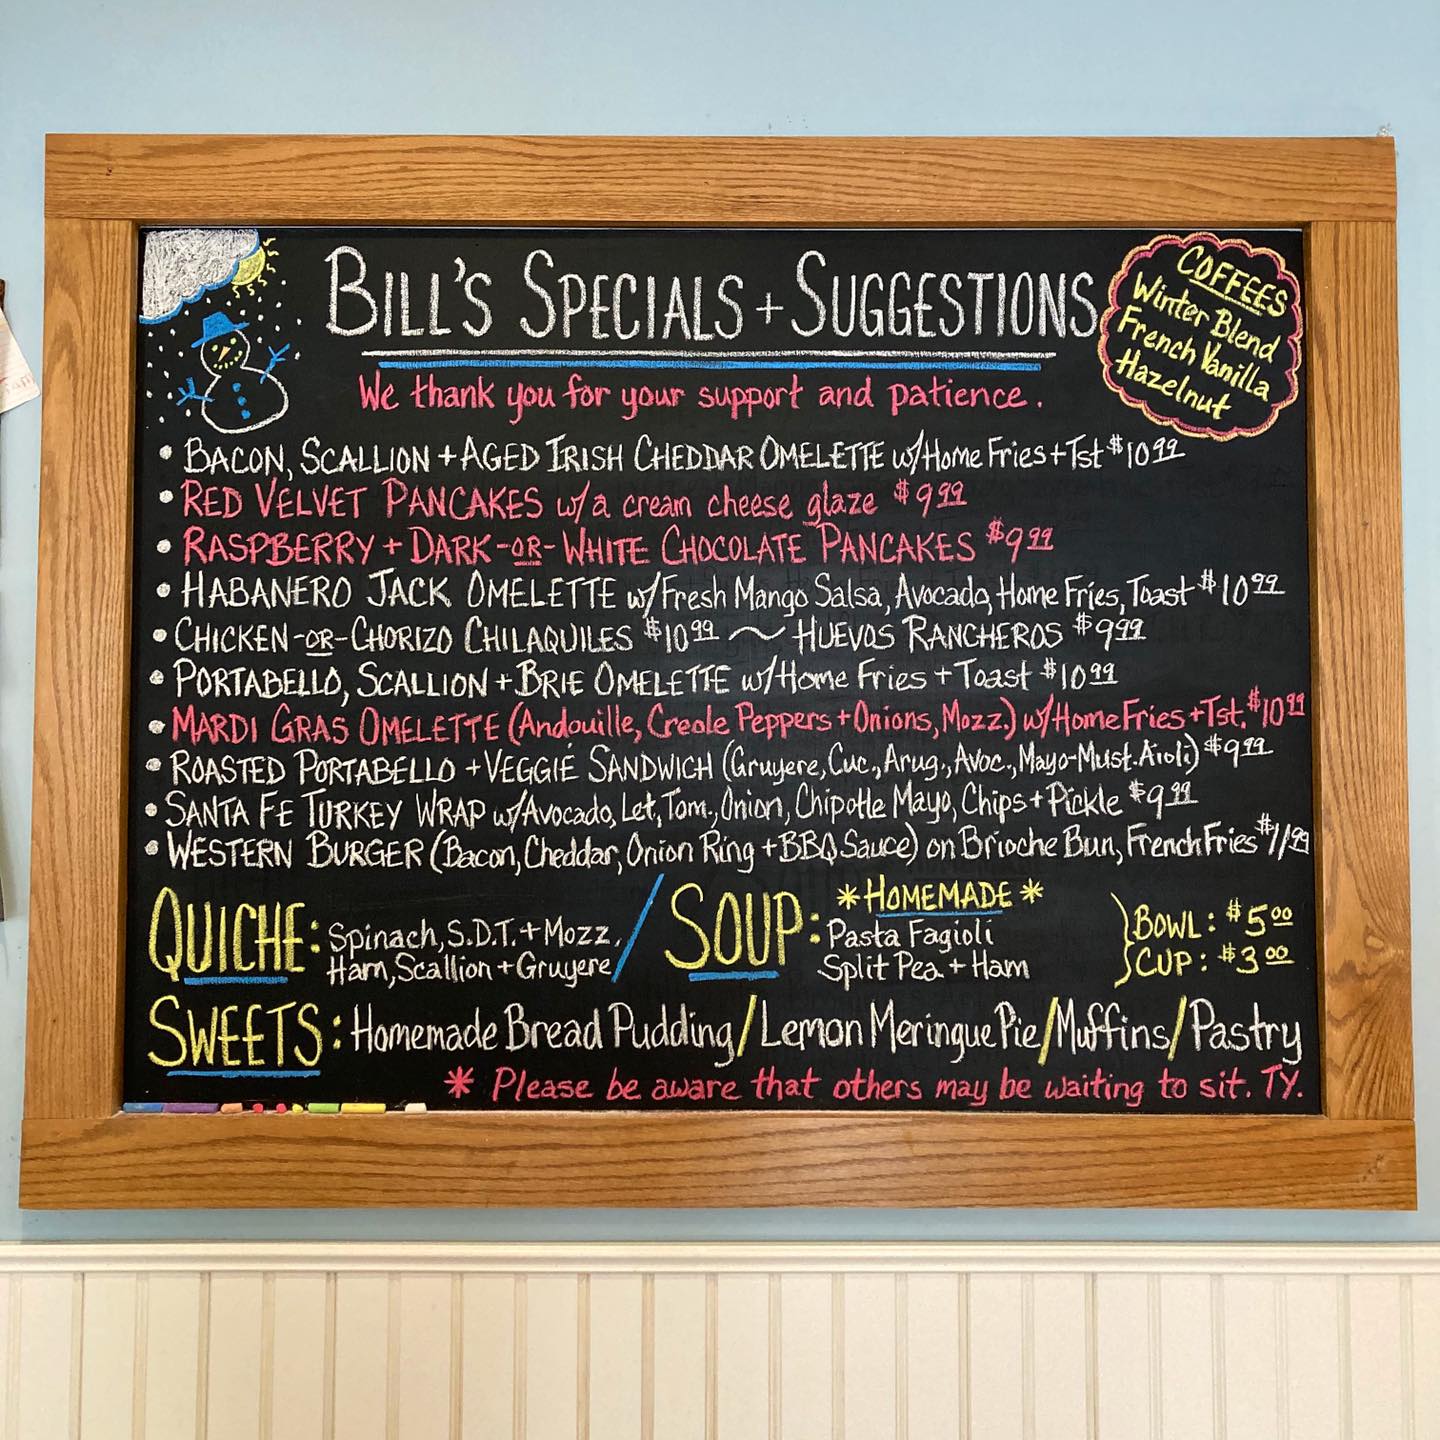 BILL'S SPECIALS + SUGGESTIONS
We thank you for your support and patience.
COFFEES
Winter Blend
French Vanilla
Hazelnut
• BACON, SCALLION + AGED IRISH CHEDDAR OMELETTE w/Home Fries + Tst $10.99
• RED VELVET PANCAKES w/a cream cheese glaze $9.99
• RASPBERRY + DARK -OR- WHITE CHOCOLATE PANCAKES $9.99
• HABANERO JACK OMELETTE w/Fresh Mango Salsa, Avocado, Home Fries, Toast $10.99
• CHICKEN -OR- CHORIZO CHILAQUILES $10.99 ~ HUEVOS RANCHEROS $9.99
• PORTABELLO, SCALLION + BRIE OMELETTE w/Home Fries + Toast $10.99
• MARDI GRAS OMELETTE (Andouille, Creole Peppers + Onions, Mozz.) w/Home Fries + Tst. $10.99
• ROASTED PORTABELLO + VEGGIE SANDWICH (Gruyere, Cuc., Arug., Avoc., Mayo-Must. Aioli) $9.99
• SANTA FE TURKEY WRAP w/Avocado, Let, Tom., Onion, Chipotle Mayo, Chips + Pickle $9.99
• WESTERN BURGER (Bacon, Cheddar, Onion Ring + BBQ Sauce) on Brioche Bun, French Fries $11.99
QUICHE: Spinach, S.D.T. + Mozz.
Ham, Scallion + Gruyere
/ SOUP: *HOMEMADE*
Pasta Fagioli
Split Pea + Ham
BOWL: $5.00
CUP: $3.00
SWEETS: Homemade Bread Pudding / Lemon Meringue Pie / Muffins / Pastry
* Please be aware that others may be waiting to sit. TY.